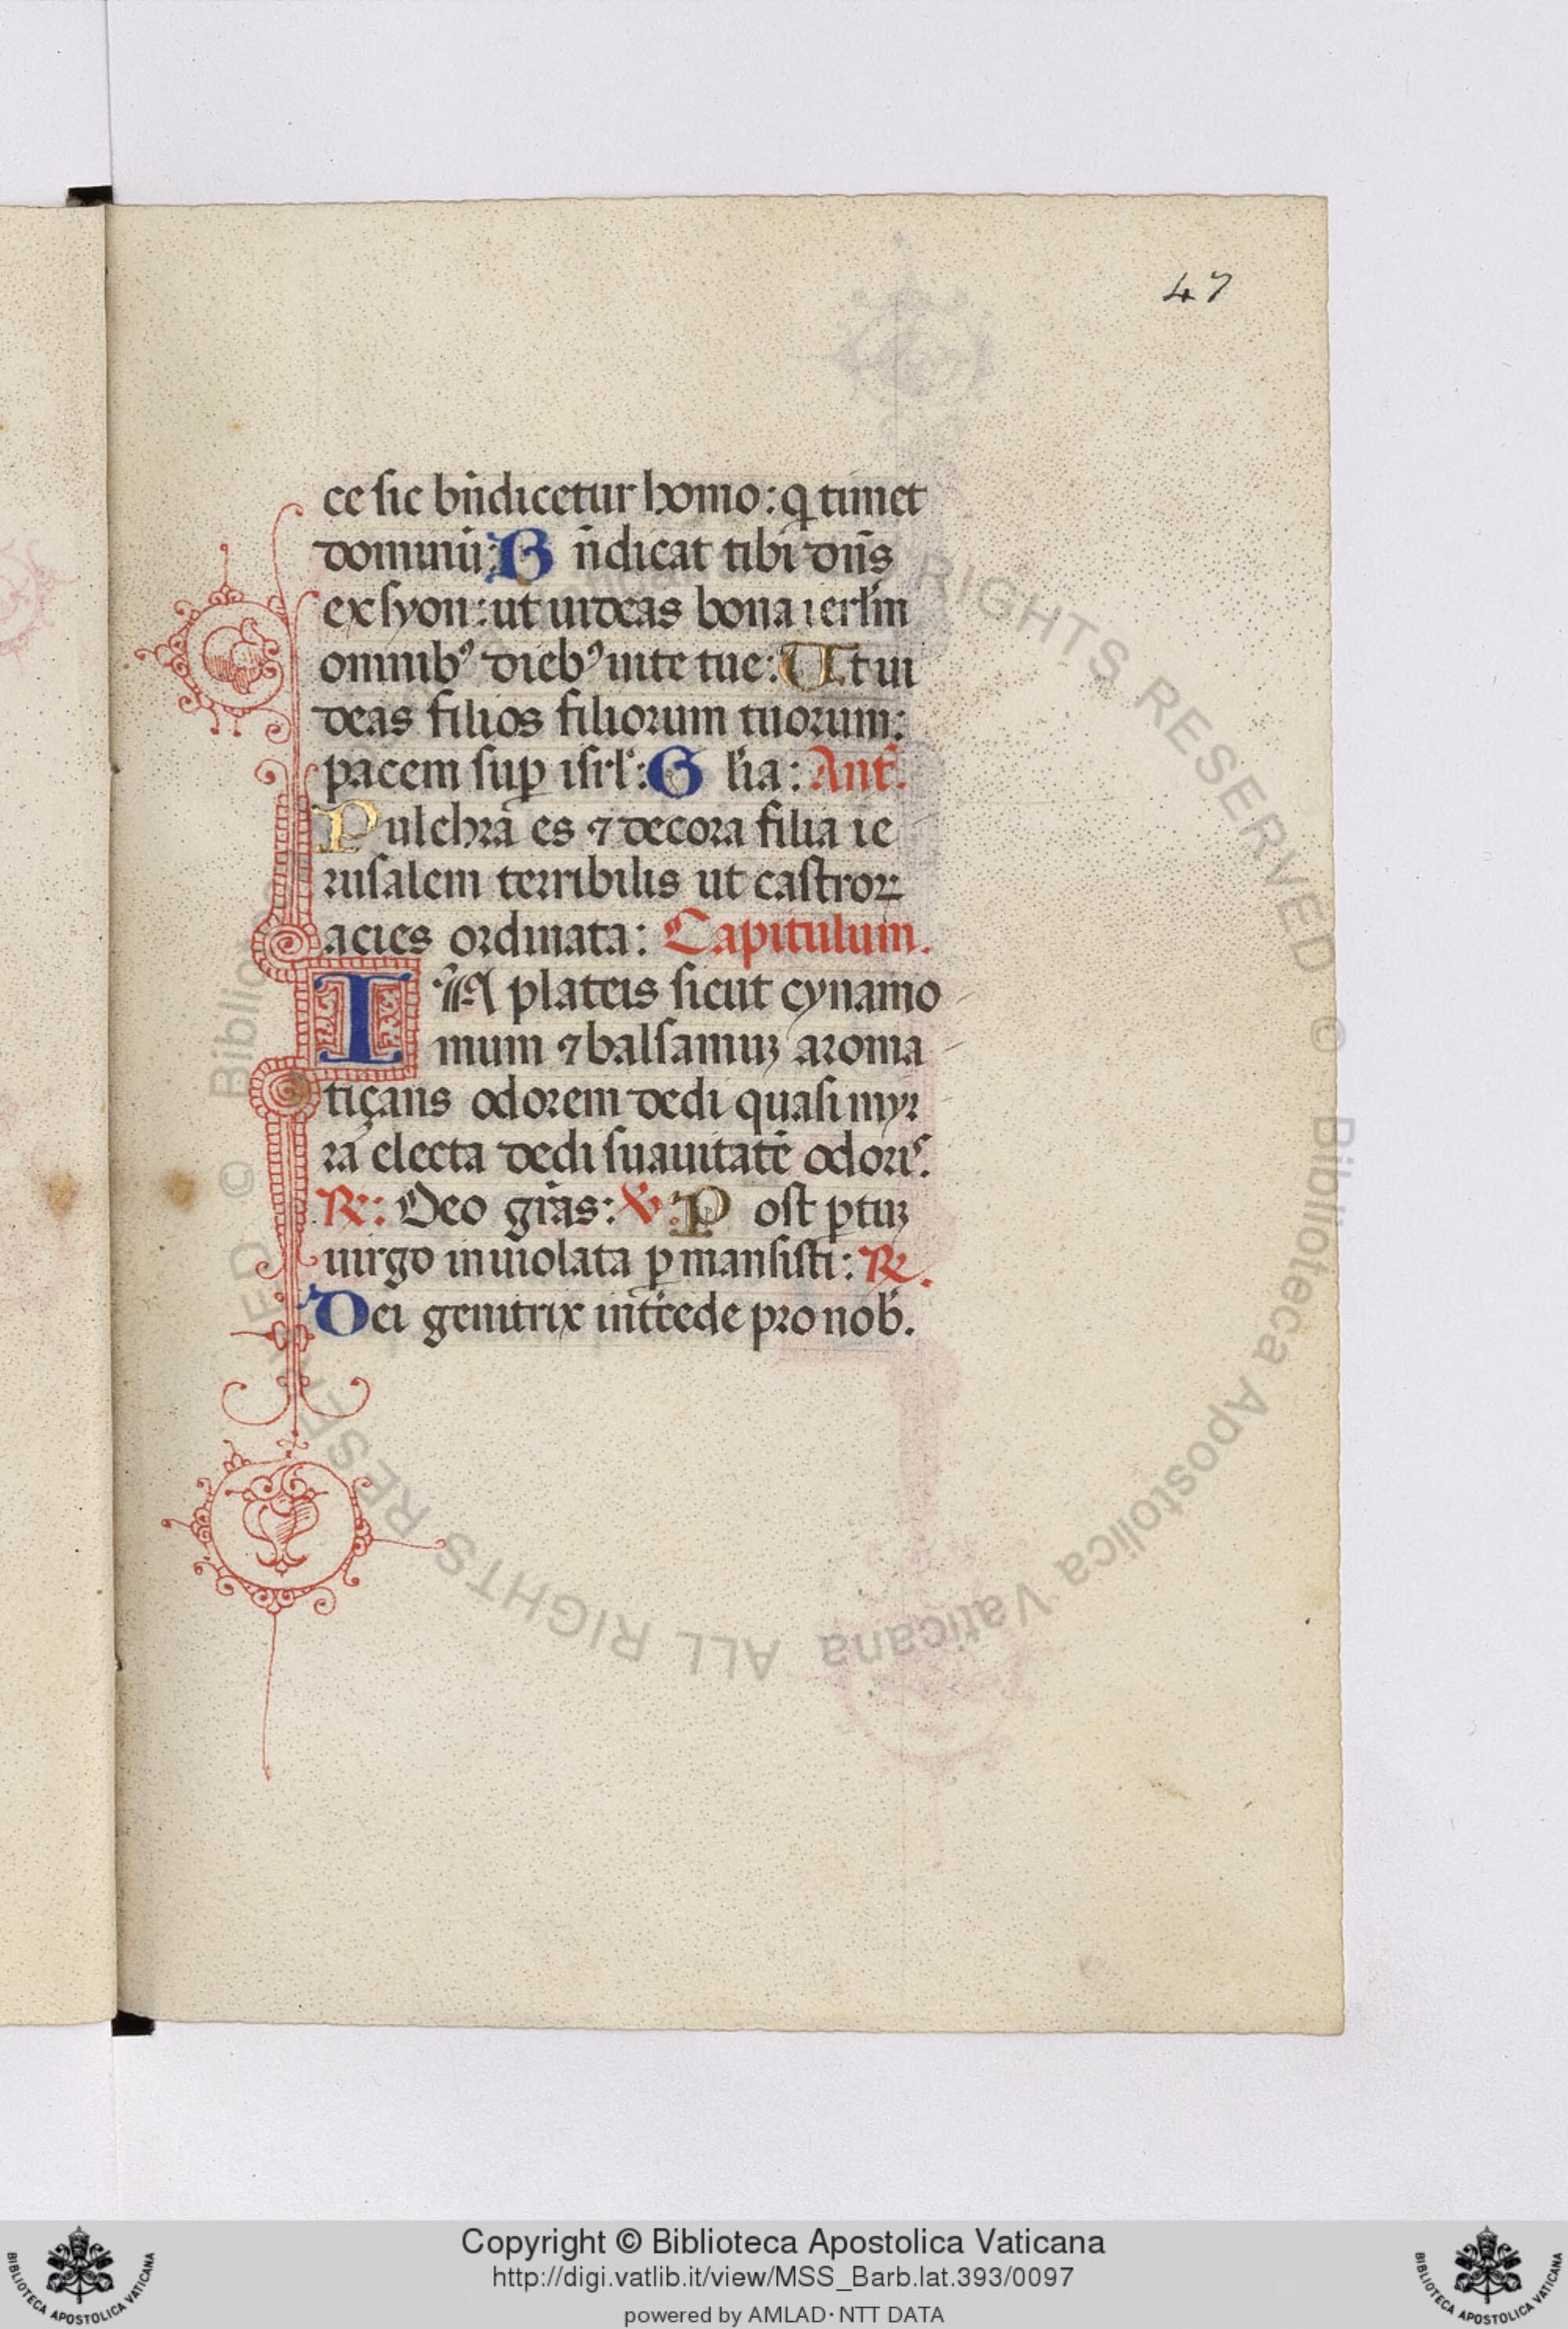 47
ce sic bn̄dicetur homo: ꝙ timet
dominū: B n̄dicat tibi dn̄s
ex syon: ut uideas bona ierl̄m
omnibꝰ diebꝰ uite tue: Ut ui
deas filios filiorum tuorum:
pacem sup̱ isrl̄: G l̄ia: Ant̄.
Pulchra es ⁊ decora filia ie
rusalem terribilis ut castroꝝ
acies ordinata: Capitulum.
IN plateis sicut cynamo
mum ⁊ balsamuꝫ aroma
tiçans odorem dedi quasi myr
ra electa dedi suauitatē odoriˢ.
℟: Deo grās: ℣. P ost ꝑtuꝫ
uirgo inuiolata ꝑmansisti: ℟.
Dei genitrix int̄cede pro nob̄.
© Biblioteca Apostolica Vaticana ALL RIGHTS RESERVED
© Biblioteca Apostolica Vaticana ALL RIGHTS RESERVED
Copyright © Biblioteca Apostolica Vaticana
http://digi.vatlib.it/view/MSS_Barb.lat.393/0097
powered by AMLAD·NTT DATA
BIBLIOTECA APOSTOLICA VATICANA
BIBLIOTECA APOSTOLICA VATICANA